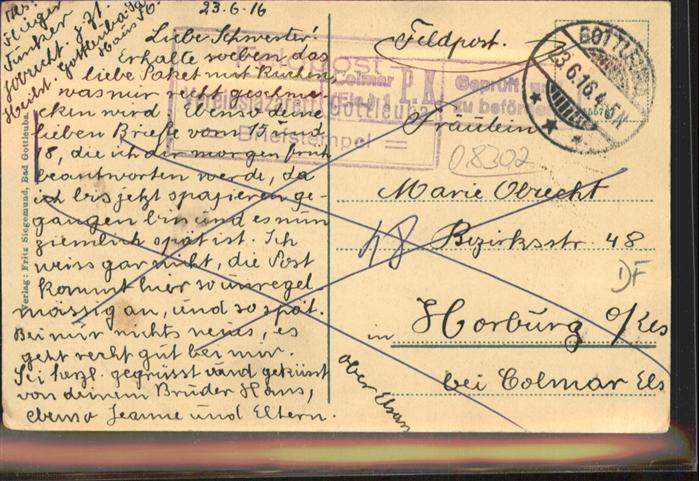 23.6.16
Abs:
Flieger
Funker
Obrecht z. Zt.
Heilst. Gottleuba Sa
Haus
Liebe Schwester!
Erhalte soeben das
liebe Paket mit Kuchen,
was mir recht geschme-
cken wird. Ebenso deine
lieben Briefe vom 15 und
18, die ich dir morgen früh
beantworten werde, da
ich bis jetzt spazieren ge-
gangen bin und es nun
ziemlich spät ist. Ich
weiss gar nicht, die Post
kommt hier so unregel
mässig an, und so spät.
Bei mir nichts neues, es
geht recht gut bei mir.
Sei herzl. gegrüsst und geküsst
von deinem Bruder Hans,
ebenso Jeanne und Eltern.
Verlag: Fritz Siegemund, Bad Gottleuba.
Feldpost
Vereinslazarett Gottleuba
Briefstempel
P.K.
Colmar
(Els.)
Geprüft und
zu befördern
GOTTLEUBA
23.6.16.4-5N
Feldpost.
Fräulein
08302
Marie Obrecht
48 Bezirksstr. 48
DF
in Horburg o/Els
bei Colmar Els
Ober Elsass